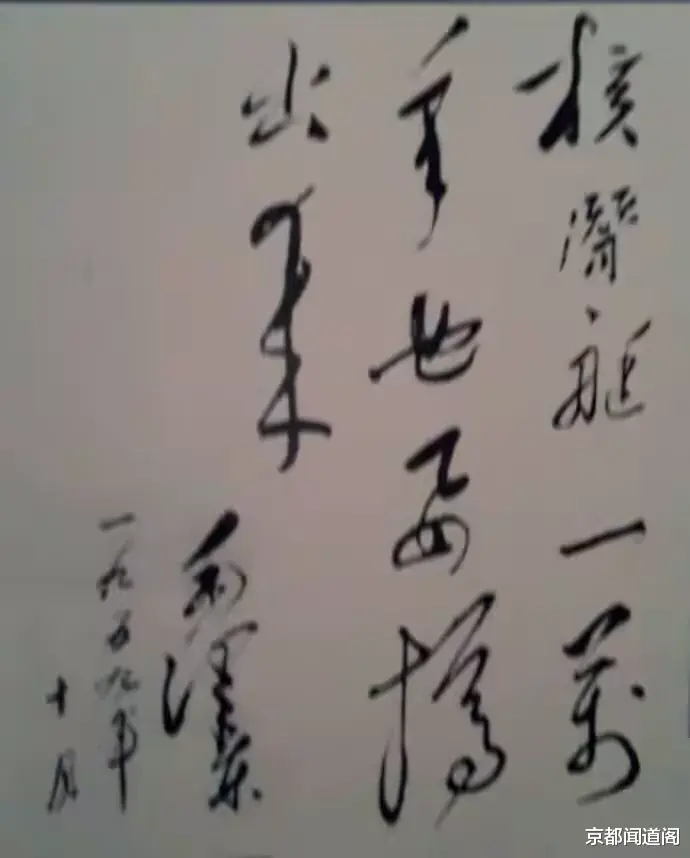 核潛艇一萬
年也要搞
出来
毛澤东
一九五九年
十月
京都闻道阁